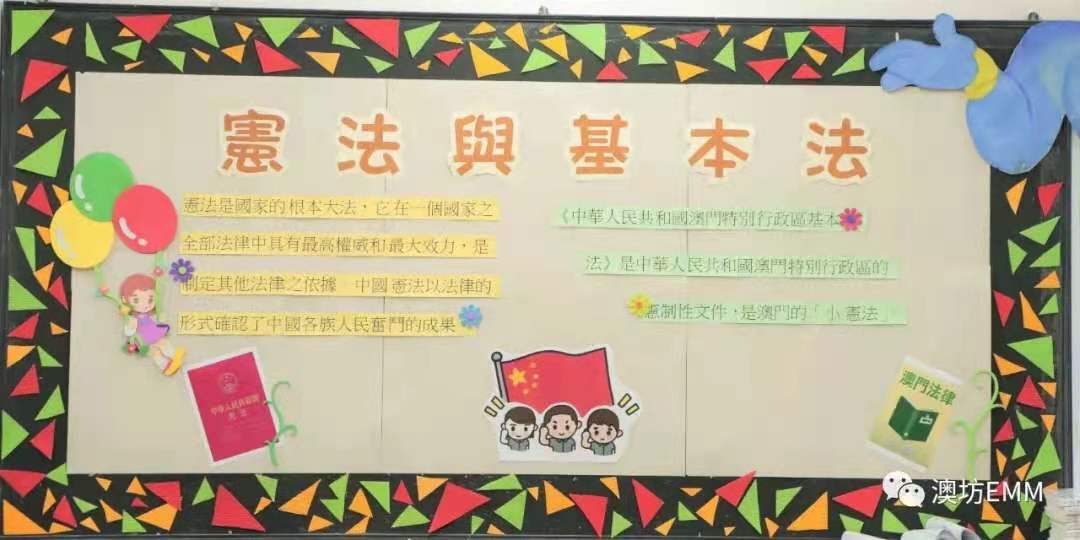 憲法與基本法
憲法是國家的根本大法，它在一個國家之
全部法律中具有最高權威和最大效力，是
制定其他法律之依據。中國憲法以法律的
形式確認了中國各族人民奮鬥的成果
《中華人民共和國澳門特別行政區基本
法》是中華人民共和國澳門特別行政區的
憲制性文件，是澳門的「小憲法」
中華人民共和國
憲法
澳門法律
澳坊EMM